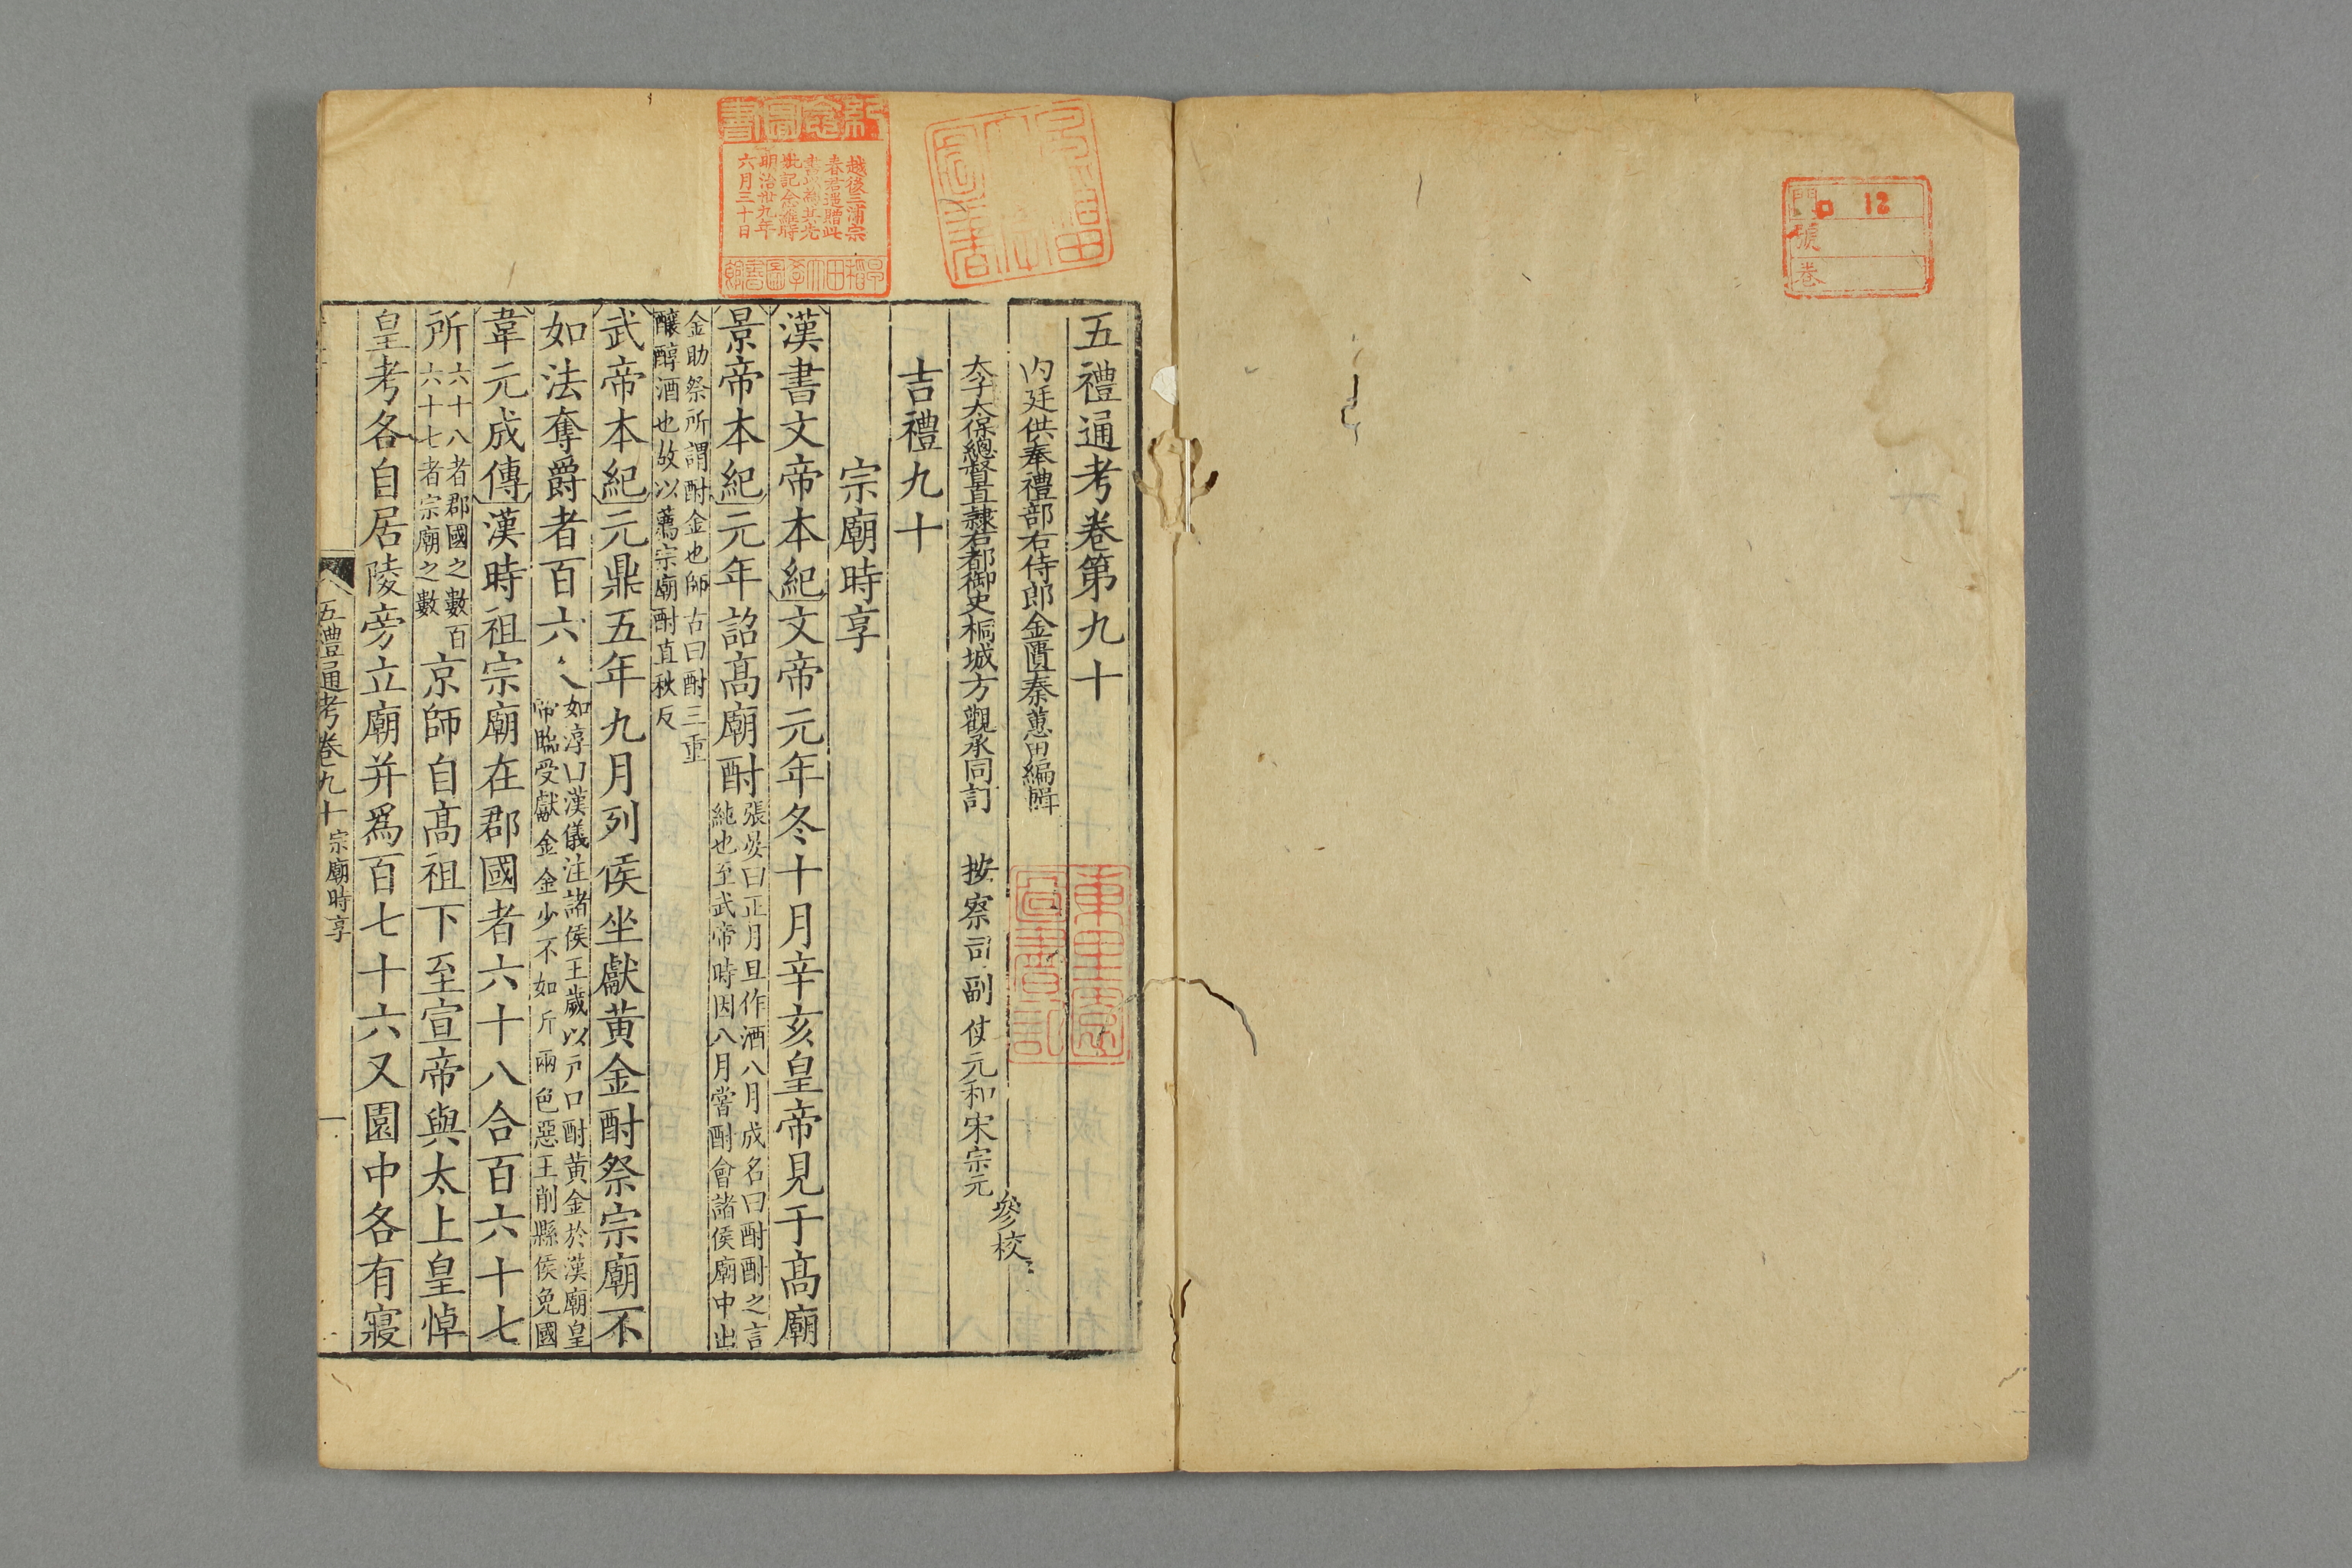 門 ロ 12
號
卷
五禮通考卷第九十
內廷供奉禮部右侍郎金匱秦蕙田編輯
太子太保總督直隸右都御史桐城方觀承同訂 按察司副使元和宋宗元
參校
吉禮九十
宗廟時享
漢書文帝本紀文帝元年冬十月辛亥皇帝見于高廟
景帝本紀元年詔高廟酎張晏曰正月旦作酒八月成名曰酎酎之言
純也至武帝時因八月嘗酎會諸侯廟中出
金助祭所謂酎金也師古曰酎三重
釀醇酒也故以薦宗廟酎直秋反
武帝本紀元鼎五年九月列侯坐獻黃金酎祭宗廟不
如法奪爵者百六人如淳曰漢儀注諸侯王歲以戶口酎黃金於漢廟皇
帝臨受獻金金少不如斤兩色惡王削縣侯免國
韋元成傳漢時祖宗廟在郡國者六十八合百六十七
所六十八者郡國之數百
六十七者宗廟之數
京師自高祖下至宣帝與太上皇悼
皇考各自居陵旁立廟并爲百七十六又園中各有寢
五禮通考卷九十 宗廟時享
一
越後三浦宗
春君遥贈此
書以爲其先
妣記念誰時
明治卅九年
六月三十日
早稻田大學圖書館